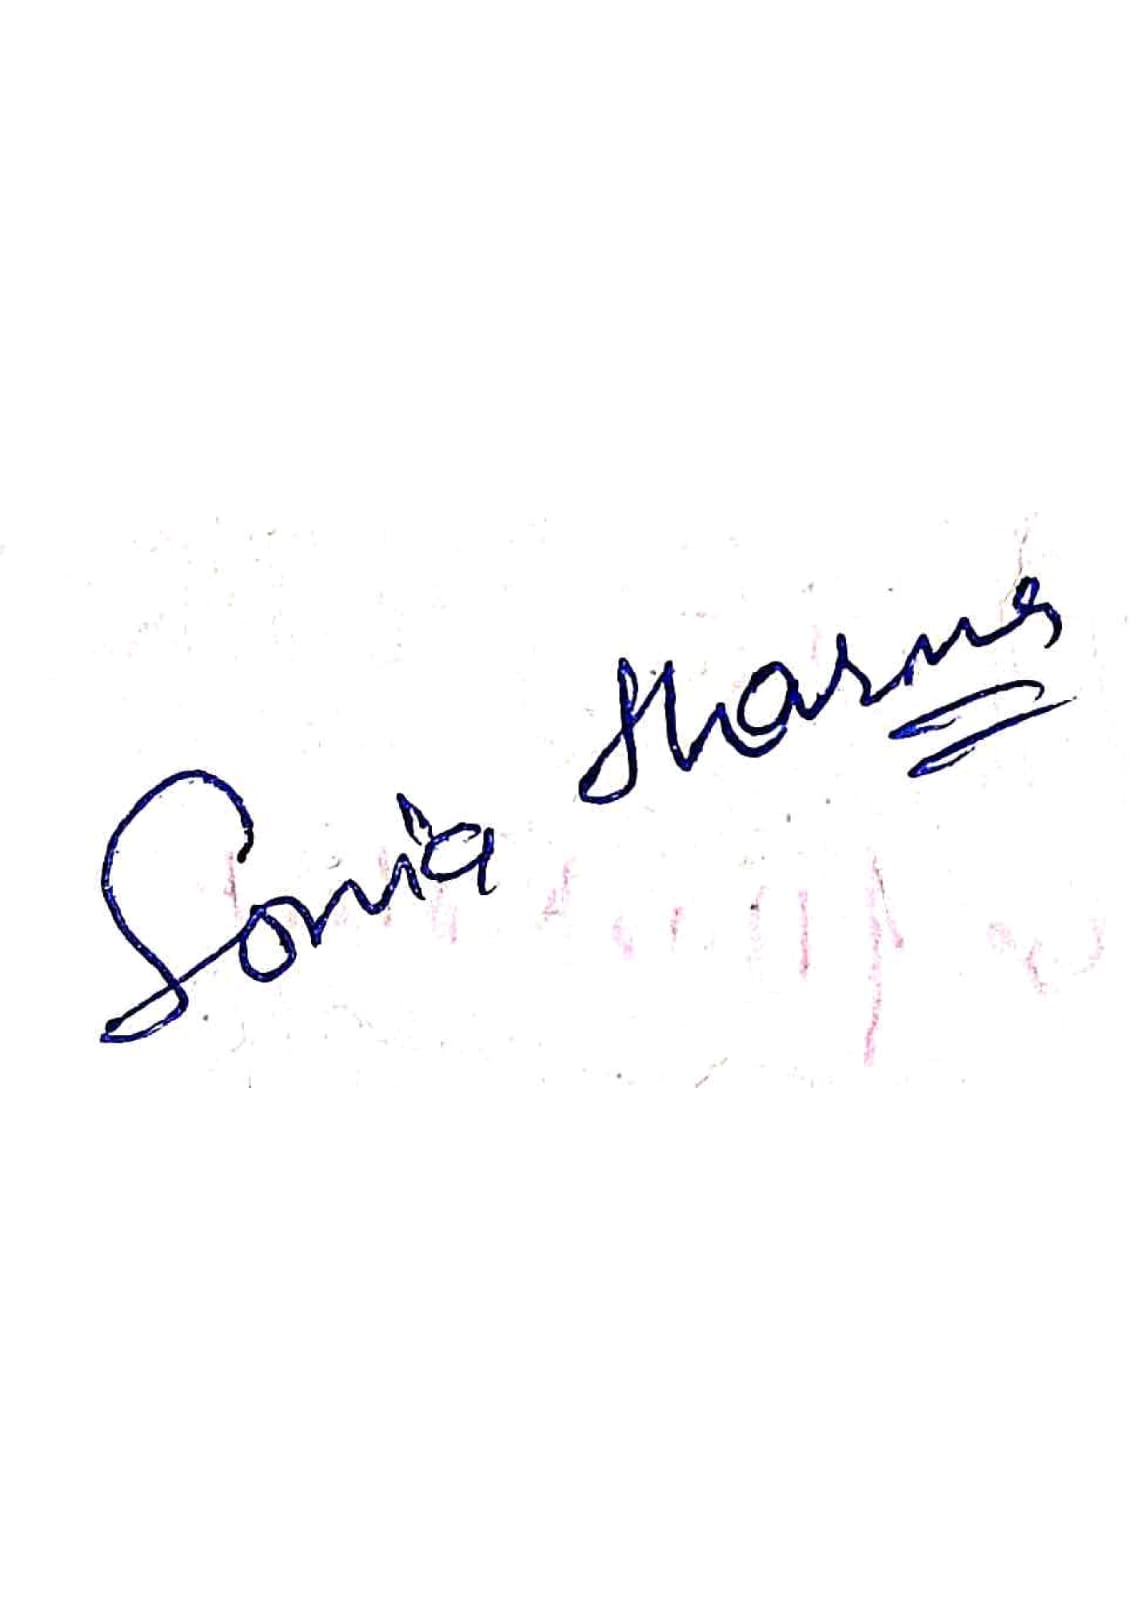 Sonia Sharma